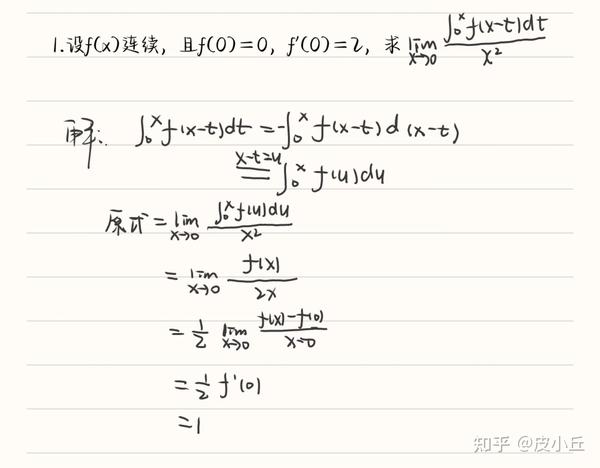 1.设f(x)连续，且f(0)=0，f'(0)=2，求 lim_{x→0} \frac{∫_0^x f(x-t)dt}{x²}
解： ∫_0^x f(x-t)dt = -∫_0^x f(x-t)d(x-t)
\overset{x-t=u}{=} ∫_0^x f(u)du
原式 = lim_{x→0} \frac{∫_0^x f(u)du}{x²}
= lim_{x→0} \frac{f(x)}{2x}
= \frac{1}{2} lim_{x→0} \frac{f(x)-f(0)}{x-0}
= \frac{1}{2} f'(0)
=1
知乎 @皮小丘